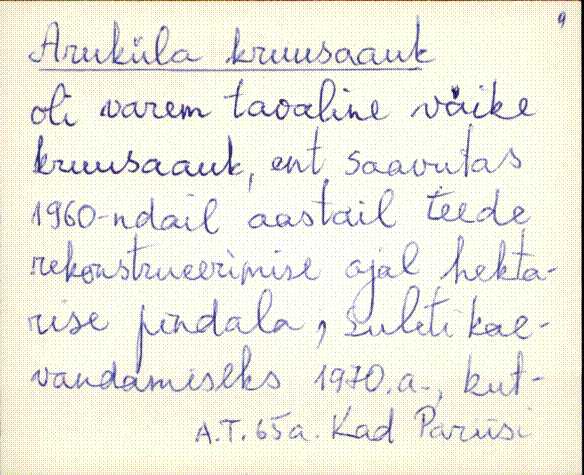 9
Aruküla kruusaauk
oli varem tavaline väike
kruusaauk, ent saavutas
1960-ndail aastail teede
rekonstrueerimise ajal hekta-
rise pindala, suleti kae-
vandamiseks 1970.a., kut-
A.T. 65a. Kad Parusi